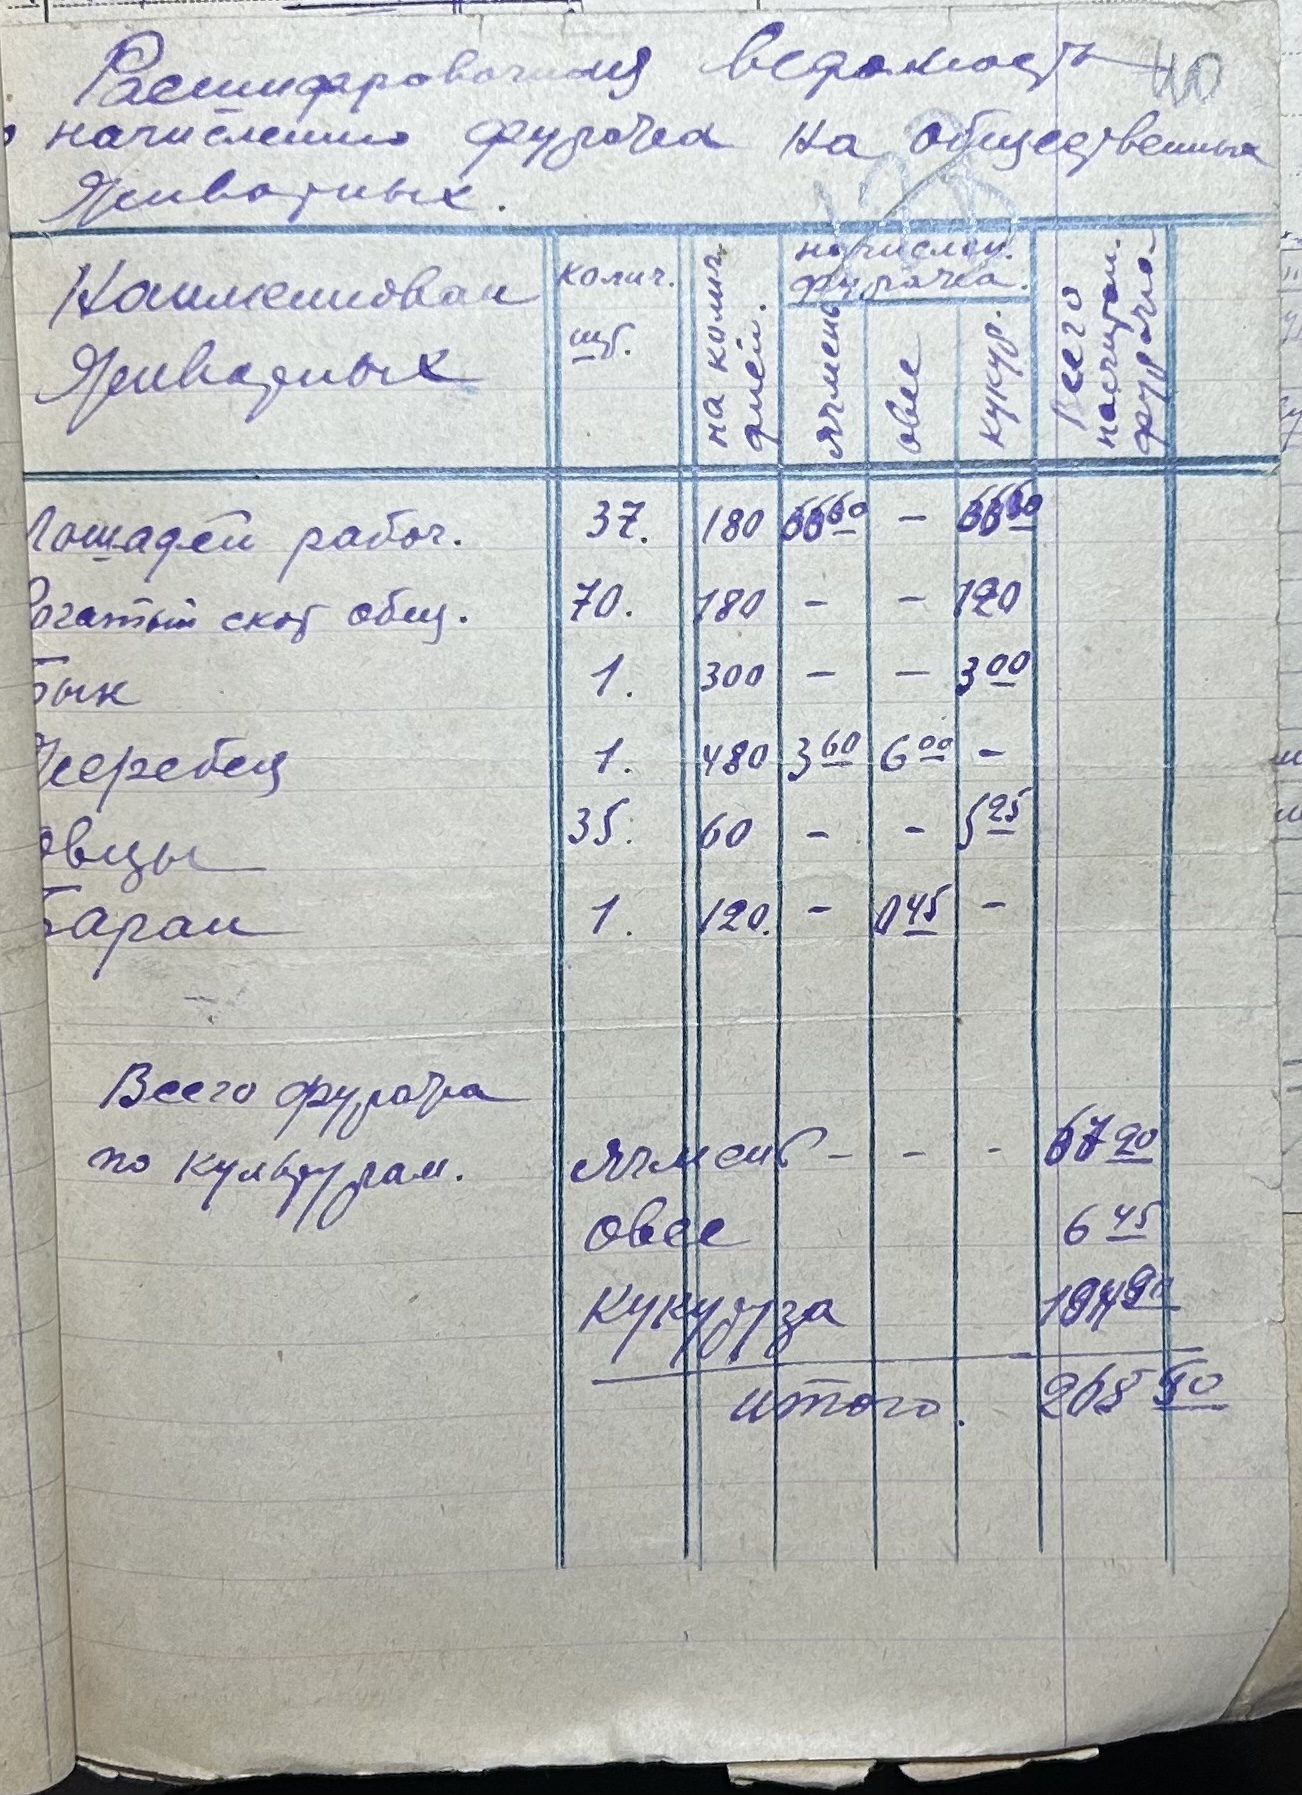 Расшифровочная ведомость 40
о начислению фуража на общественных
Животных.
Наименован колич. на колич. начислен. Всего
Животных шт. дней. фуража. насчитан. фуража.
ячмень овес кукур.
Лошадей рабоч. 37. 180 66 60 - 66 60
Рогатый скот общ. 70. 180 - - 120
Бык 1. 300 - - 3 00
Жеребец 1. 480 3 60 6 00 -
овцы 35. 60 - - 5 25
Баран 1. 120. - 0 45 -
Всего фуража
по культурам. ячмень - - - 67 20
овес 6 45
Кукуруза 194 90
итого. 268 50